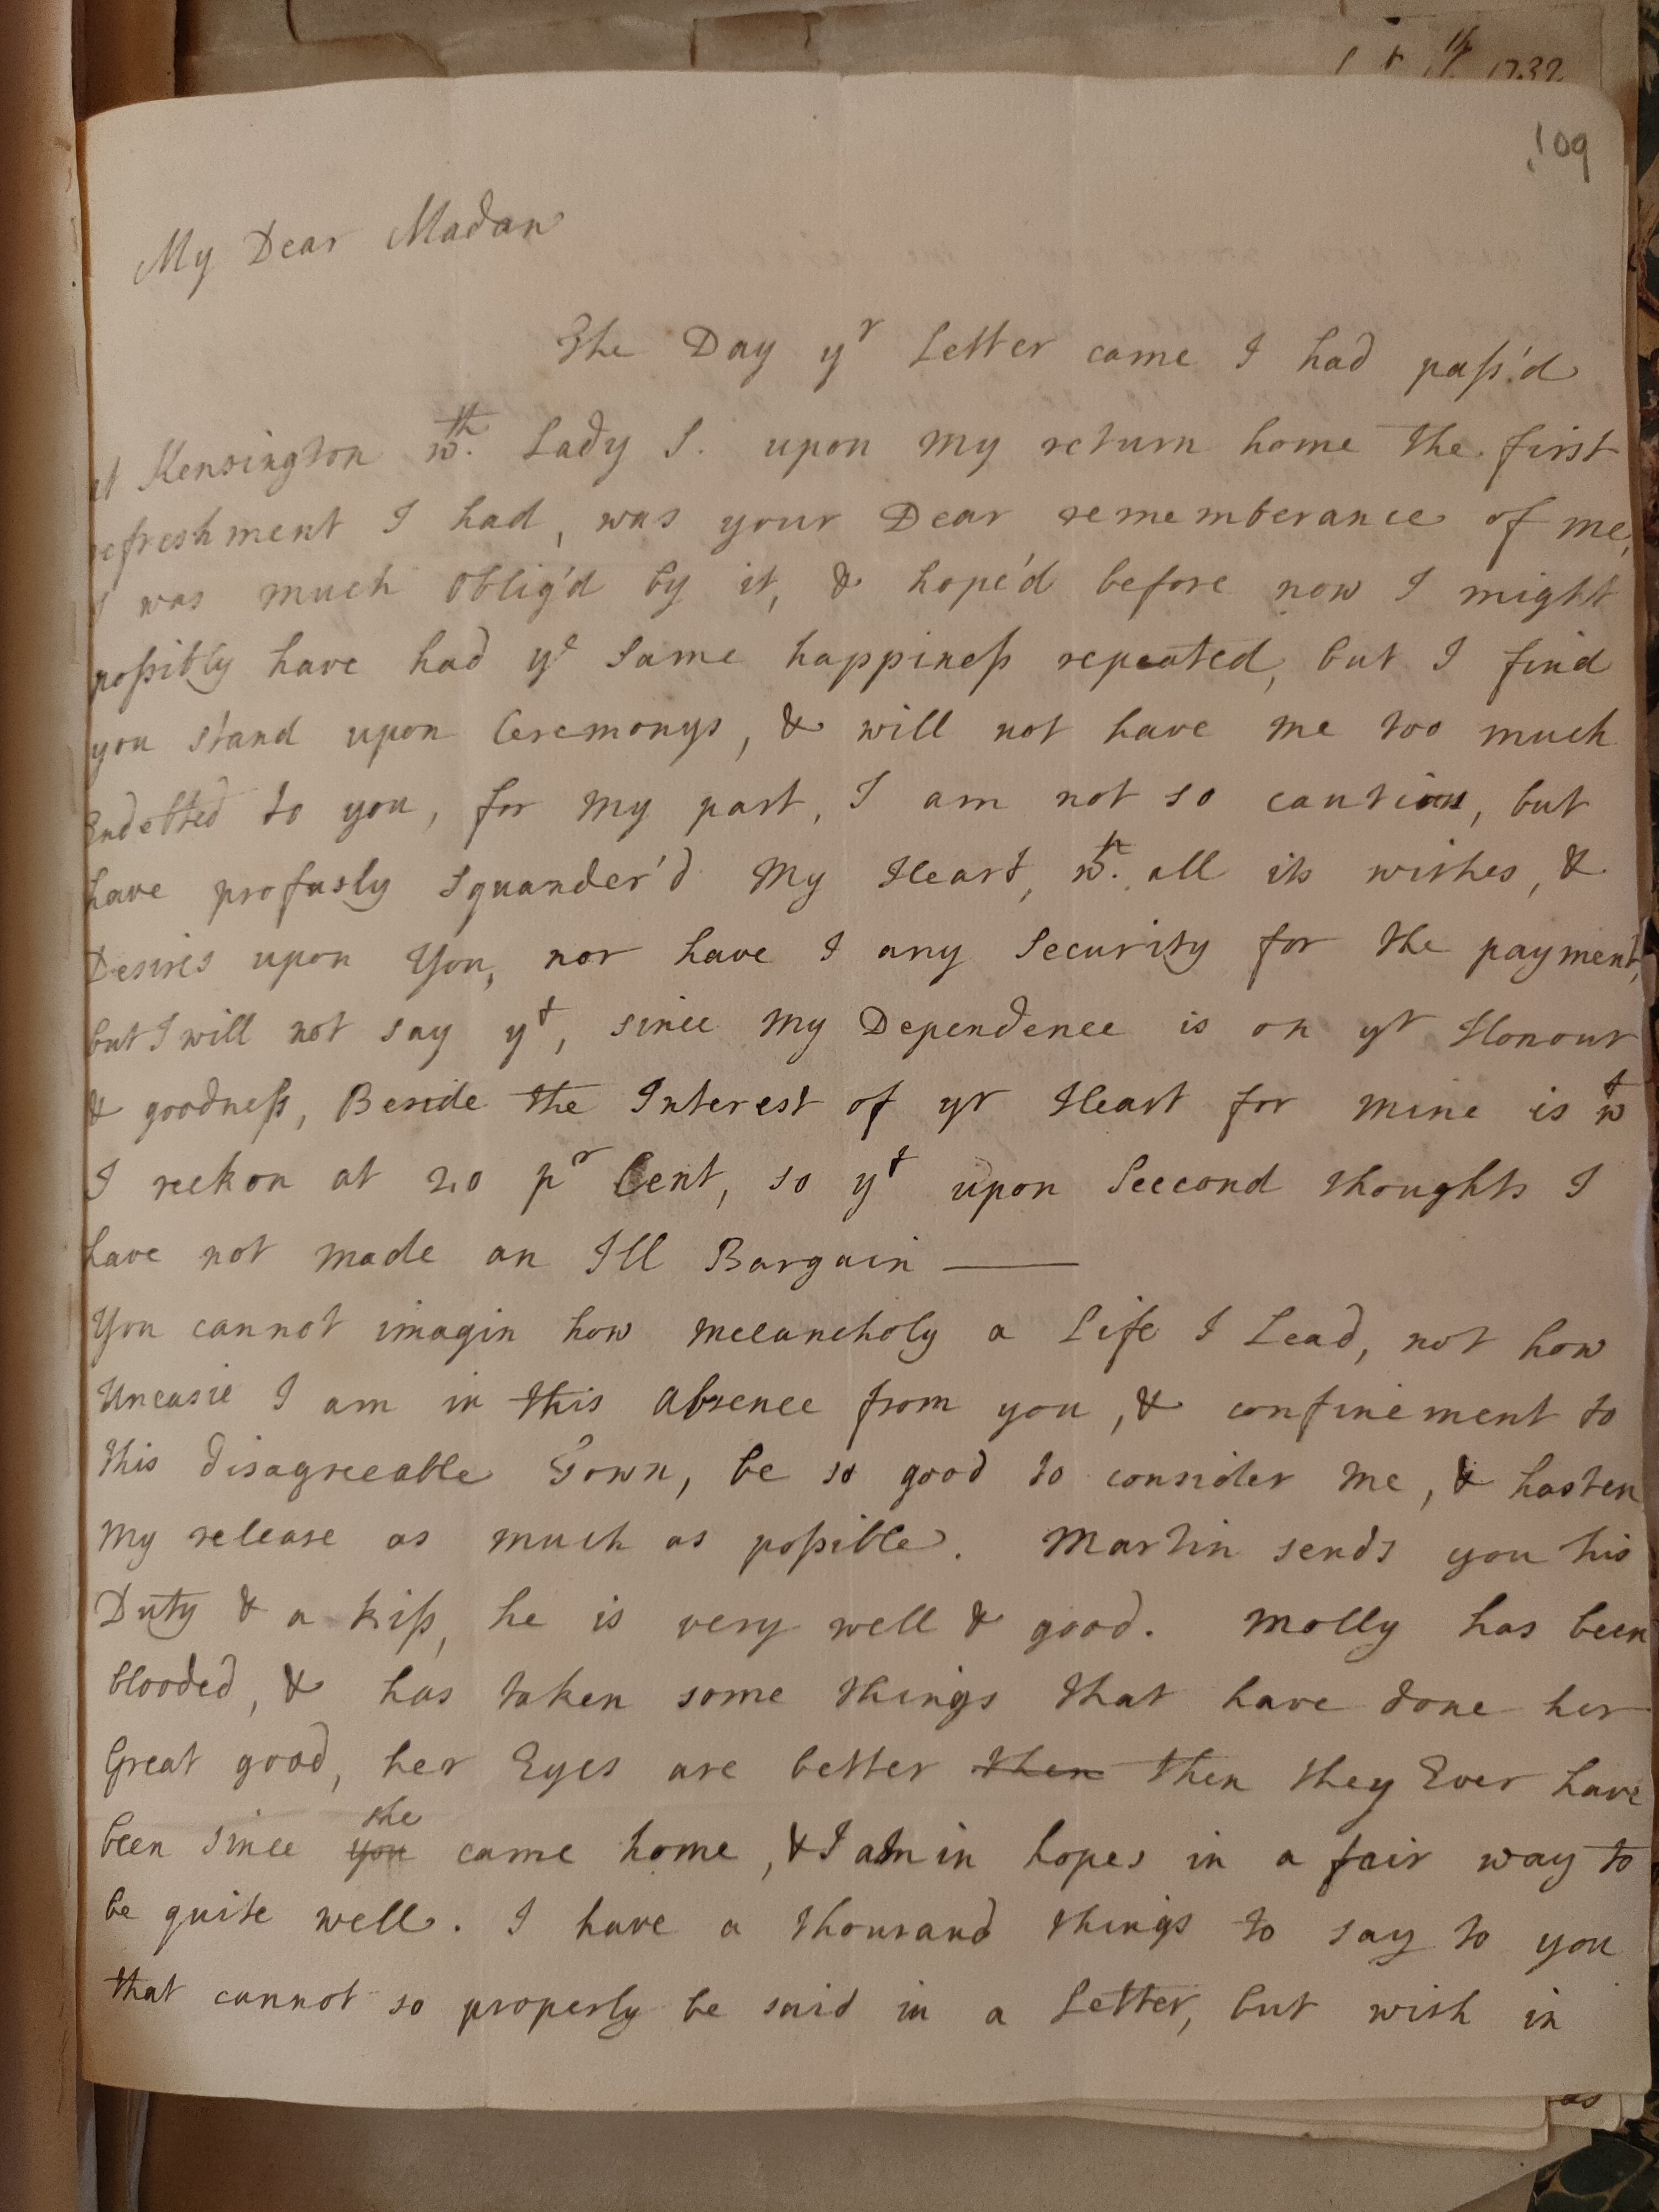 1732
109
My Dear Madan
The Day yr Letter came I had pass'd
at Kensington wth. Lady S. upon my return home the first
refreshment I had, was your Dear rememberance of me,
I was much Oblig'd by it, & hope'd before now I might
possibly have had ye same happiness repeated, but I find
you stand upon Ceremonys, & will not have me too much
Endebted to you, for my part, I am not so cautious, but
have profusly Squander'd My Heart, wth. all its wishes, &
Desires upon You, nor have I any Security for the payment,
but I will not say yt, since my Dependence is on yr Honour
& goodness, Beside the Interest of yr Heart for mine is wt
I reckon at 20 pr Cent, so yt upon Seccond thoughts I
have not made an Ill Bargain —
You cannot imagin how melancholy a Life I Lead, not how
Uneasie I am in this Absence from you, & confinement to
this disagreeable Town, be so good to consider me, & hasten
my release as much as possible. Martin sends you his
Duty & a kiss, he is very well & good. Molly has been
blooded, & has taken some things that have done her
Great good, her Eyes are better then then they Ever have
she
been since you came home, & I am in hopes in a fair way to
be quite well. I have a thousand things to say to you
that cannot so properly be said in a Letter, but wish in